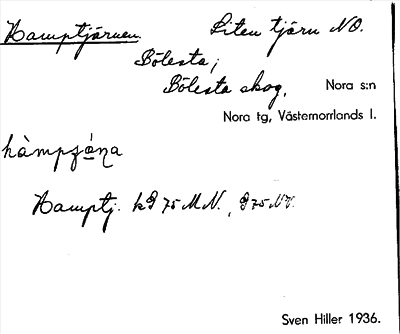 Hamptjärnen. Liten tjärn NO.
Bölesta,
Bölesta skog, Nora s:n
Nora tg, Västernorrlands l.
hàmpʒ
Hamptj.
Sven Hiller 1936.